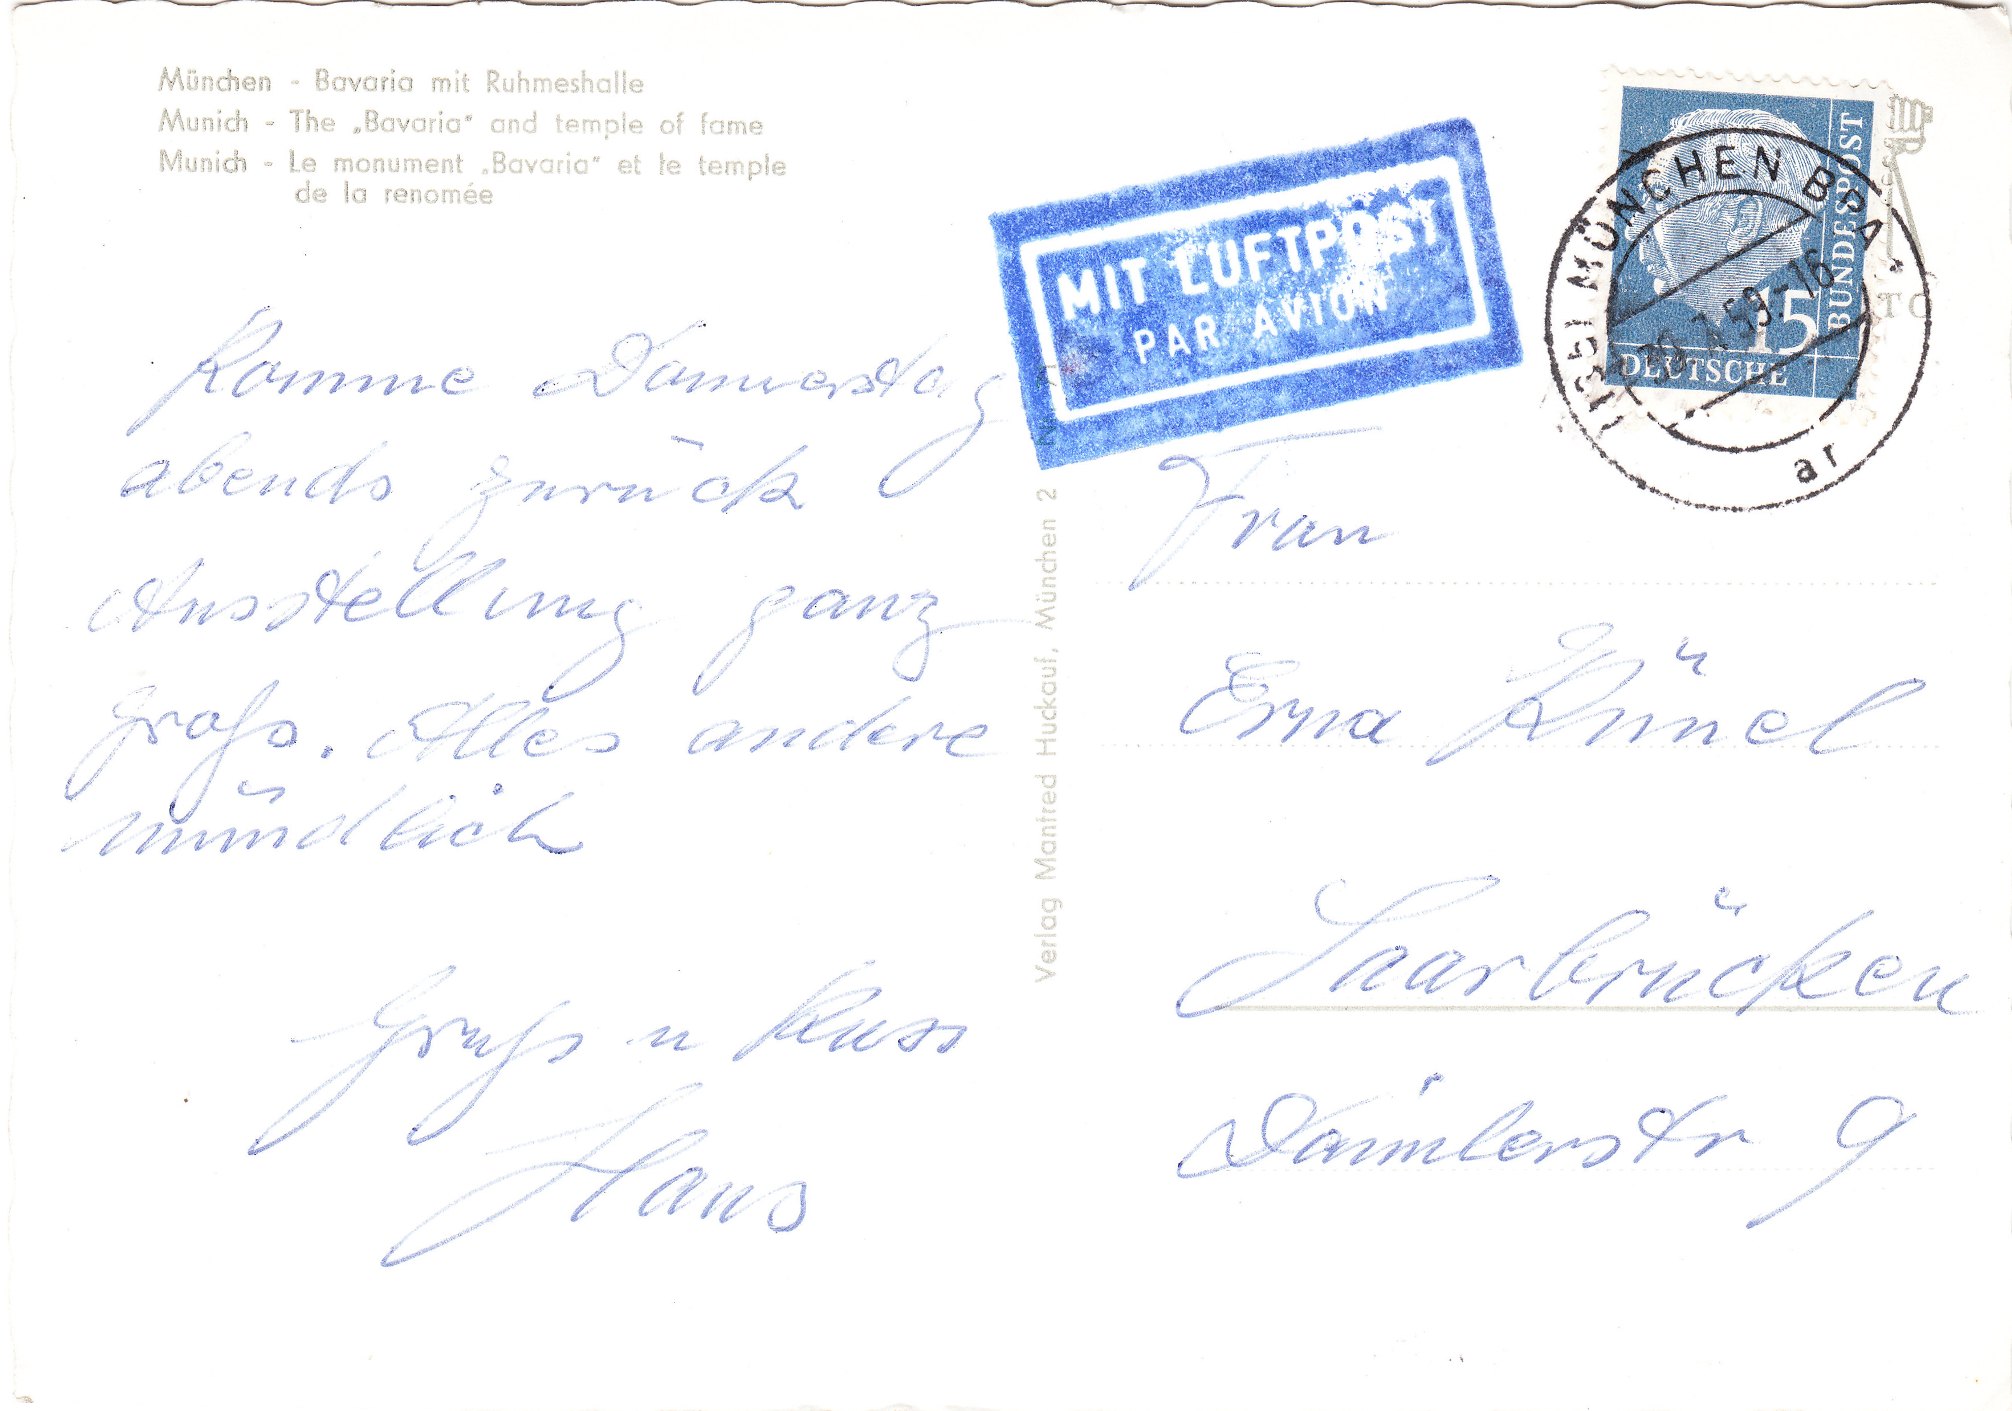 München - Bavaria mit Ruhmeshalle
Munich - The „Bavaria" and temple of fame
Munich - Le monument „Bavaria" et le temple
de la renomée
Komme Donnerstag
abends zurück
Ausstellung ganz
groß. Alles andere
mündlich
Gruß u Kuss
Hans
Verlag Manfred Huckauf, München 2
MIT LUFTPOST
PAR AVION
DEUTSCHE
BUNDESPOST
15
MÜNCHEN BPA
59-16
ar
Frau
Erna Künel
Saarbrücken
Daimlerstr 9